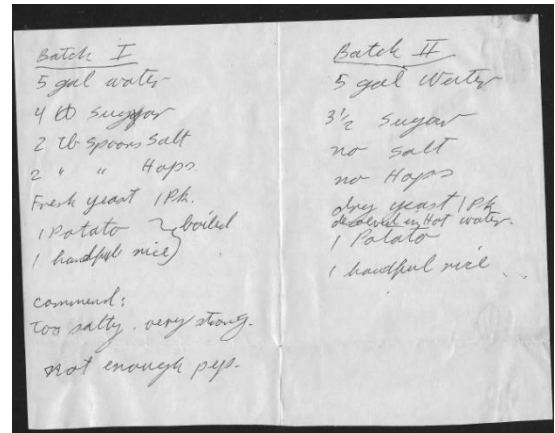 Batch I
5 gal water
4 lb Sugar
2 Tb Spoons Salt
2 " " Hops
Fresh yeast 1 Pk.
1 Potato } boiled
1 handful rice
comment:
Too salty. very strong.
not enough pep.
Batch II
5 gal Water
3 1/2 Sugar
no Salt
no Hops
dry yeast 1 Pk
desolved in Hot water.
1 Potato
1 handful rice